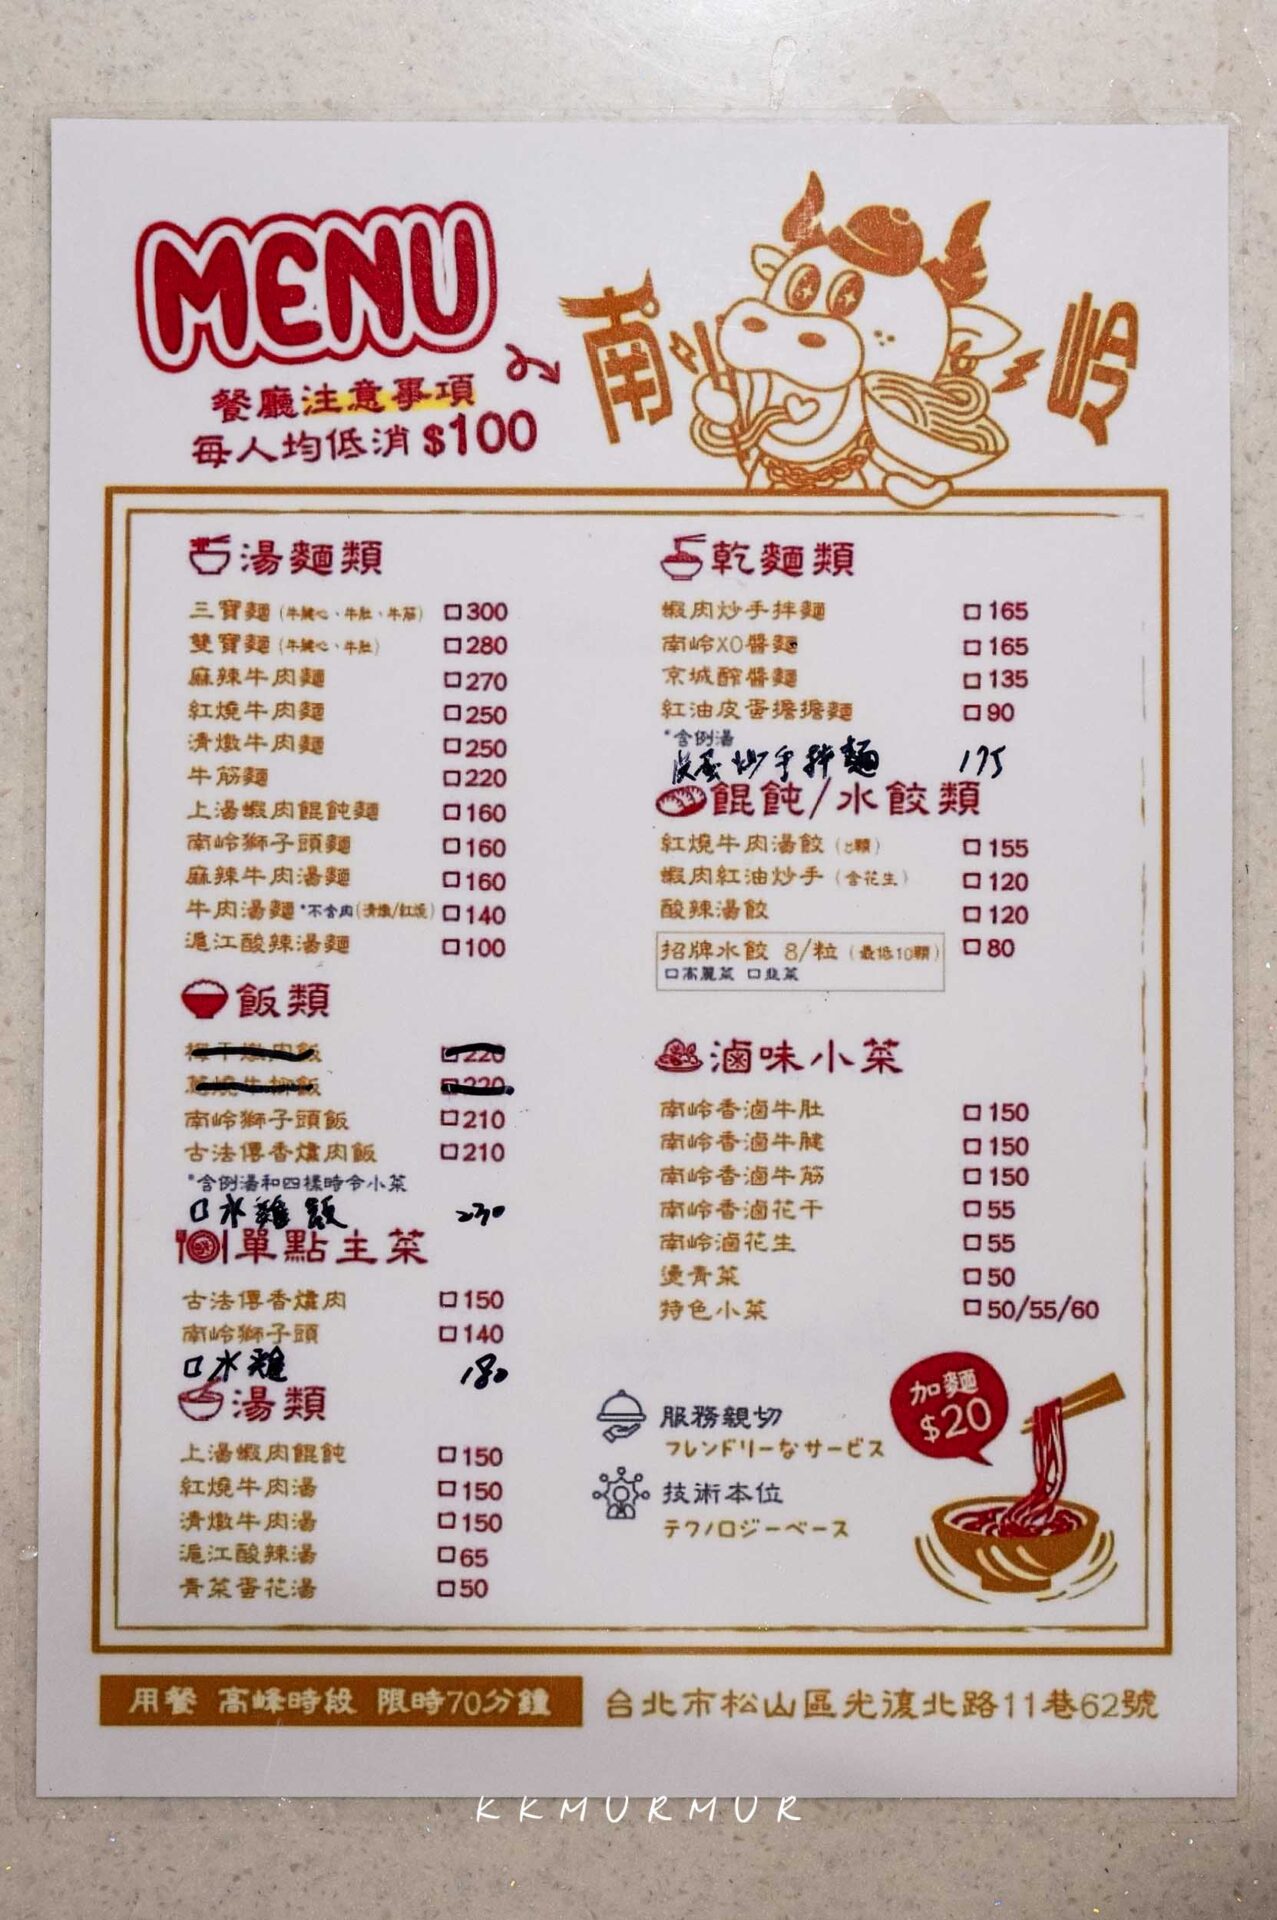 MENU
餐廳注意事項
每人均低消 $100
南岭
湯麵類
三寶麵(牛腱心、牛肚、牛筋) 300
雙寶麵(牛腱心、牛肚) 280
麻辣牛肉麵 270
紅燒牛肉麵 250
清燉牛肉麵 250
牛筋麵 220
上湯蝦肉餛飩麵 160
南岭獅子頭麵 160
麻辣牛肉湯麵 160
牛肉湯麵 *不含肉(清燉/紅燒) 140
滬江酸辣湯麵 100
飯類
梅干燉肉飯 220
蔥燒牛柳飯 220
南岭獅子頭飯 210
古法傳香爌肉飯 210
*含例湯和四樣時令小菜
口水雞飯 230
單點主菜
古法傳香爌肉 150
南岭獅子頭 140
口水雞 180
湯類
上湯蝦肉餛飩 150
紅燒牛肉湯 150
清燉牛肉湯 150
滬江酸辣湯 65
青菜蛋花湯 50
乾麵類
蝦肉炒手拌麵 165
南岭XO醬麵 165
京城醡醬麵 135
紅油皮蛋擔擔麵 90
*含例湯
皮蛋炒手拌麵 175
餛飩/水餃類
紅燒牛肉湯餃(8顆) 155
蝦肉紅油炒手(含花生) 120
酸辣湯餃 120
招牌水餃 8/粒(最低10顆) 80
口高麗菜 口韭菜
滷味小菜
南岭香滷牛肚 150
南岭香滷牛腱 150
南岭香滷牛筋 150
南岭香滷花干 55
南岭滷花生 55
燙青菜 50
特色小菜 50/55/60
服務親切
フレンドリーなサービス
技術本位
テクノロジーベース
加麵
$20
用餐 高峰時段 限時70分鐘
台北市松山區光復北路11巷62號
KKMURMUR